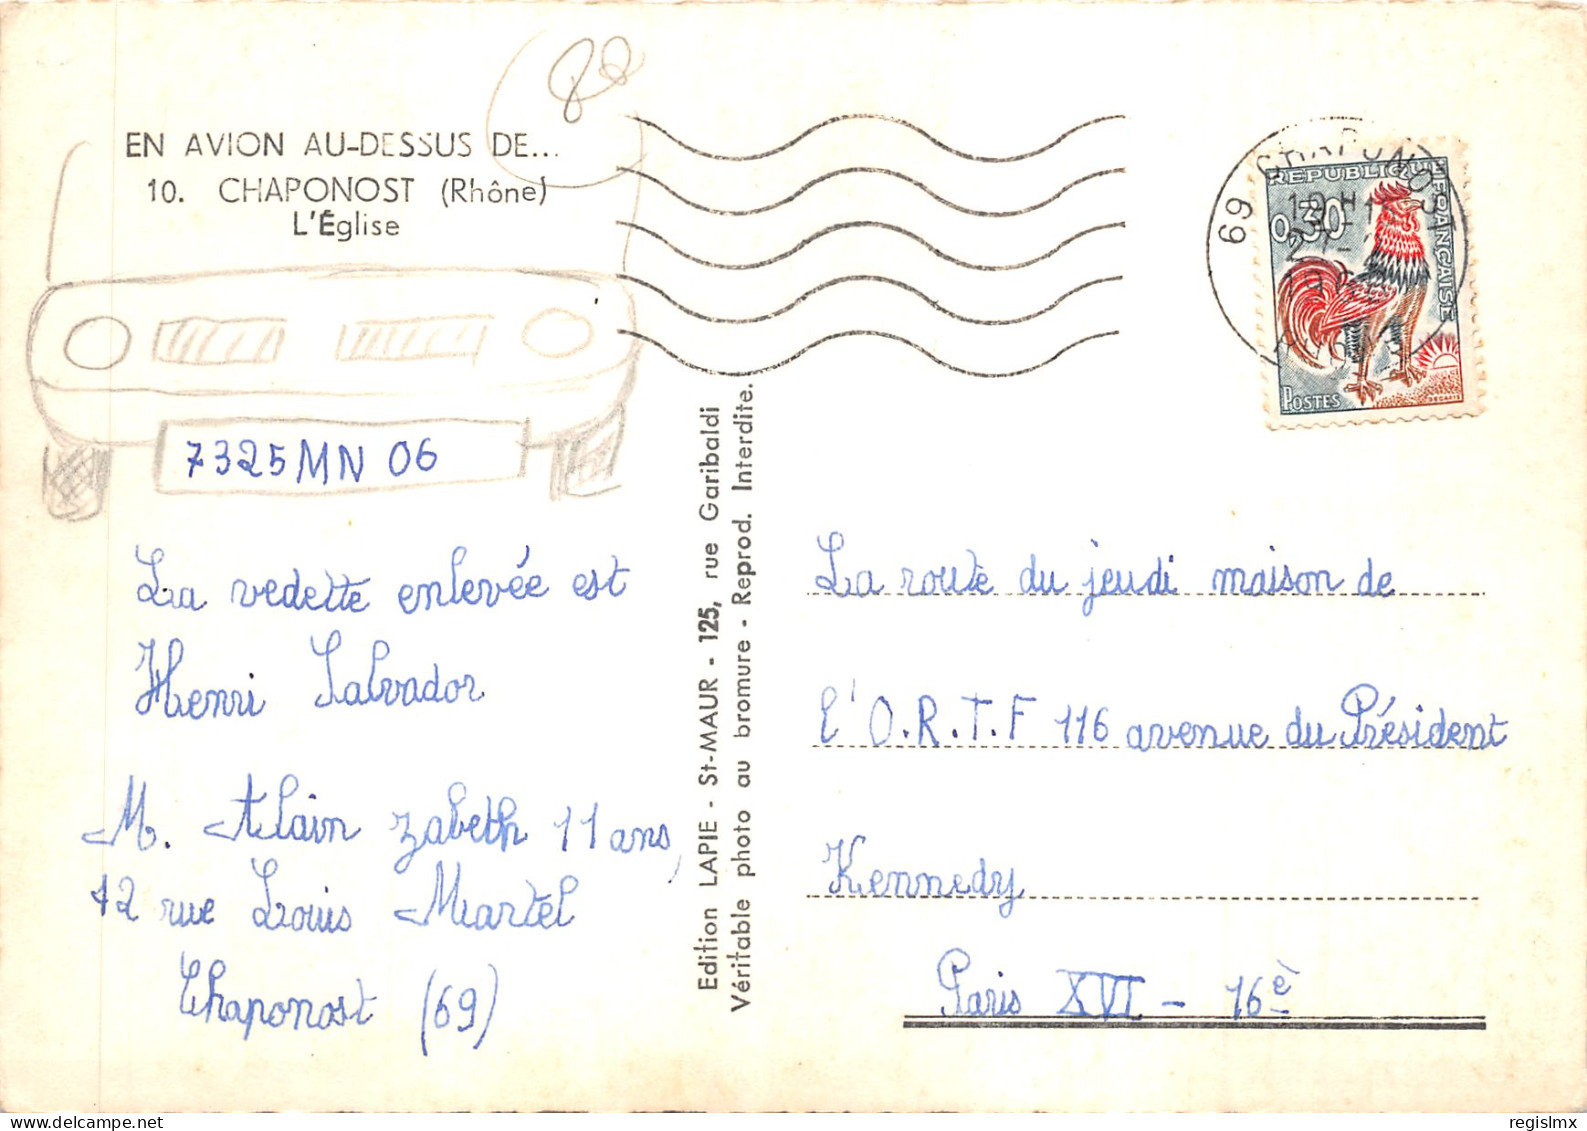 80
EN AVION AU-DESSUS DE...
10. CHAPONOST (Rhône)
L'Église
7325 MN 06
La vedette enlevée est
Henri Salvador
M. Alain Zabeth 11 ans,
12 rue Louis Martel
Chaponost (69)
Edition LAPIE - St-MAUR - 125, rue Garibaldi
Véritable photo au bromure - Reprod. Interdite.
69 CHAPONOST
RHONE
REPUBLIQUE FRANÇAISE
0,30
POSTES
DECARIS
La route du jeudi maison de
l'O.R.T.F 116 avenue du Président
Kennedy
Paris XVI - 16è
regislmx